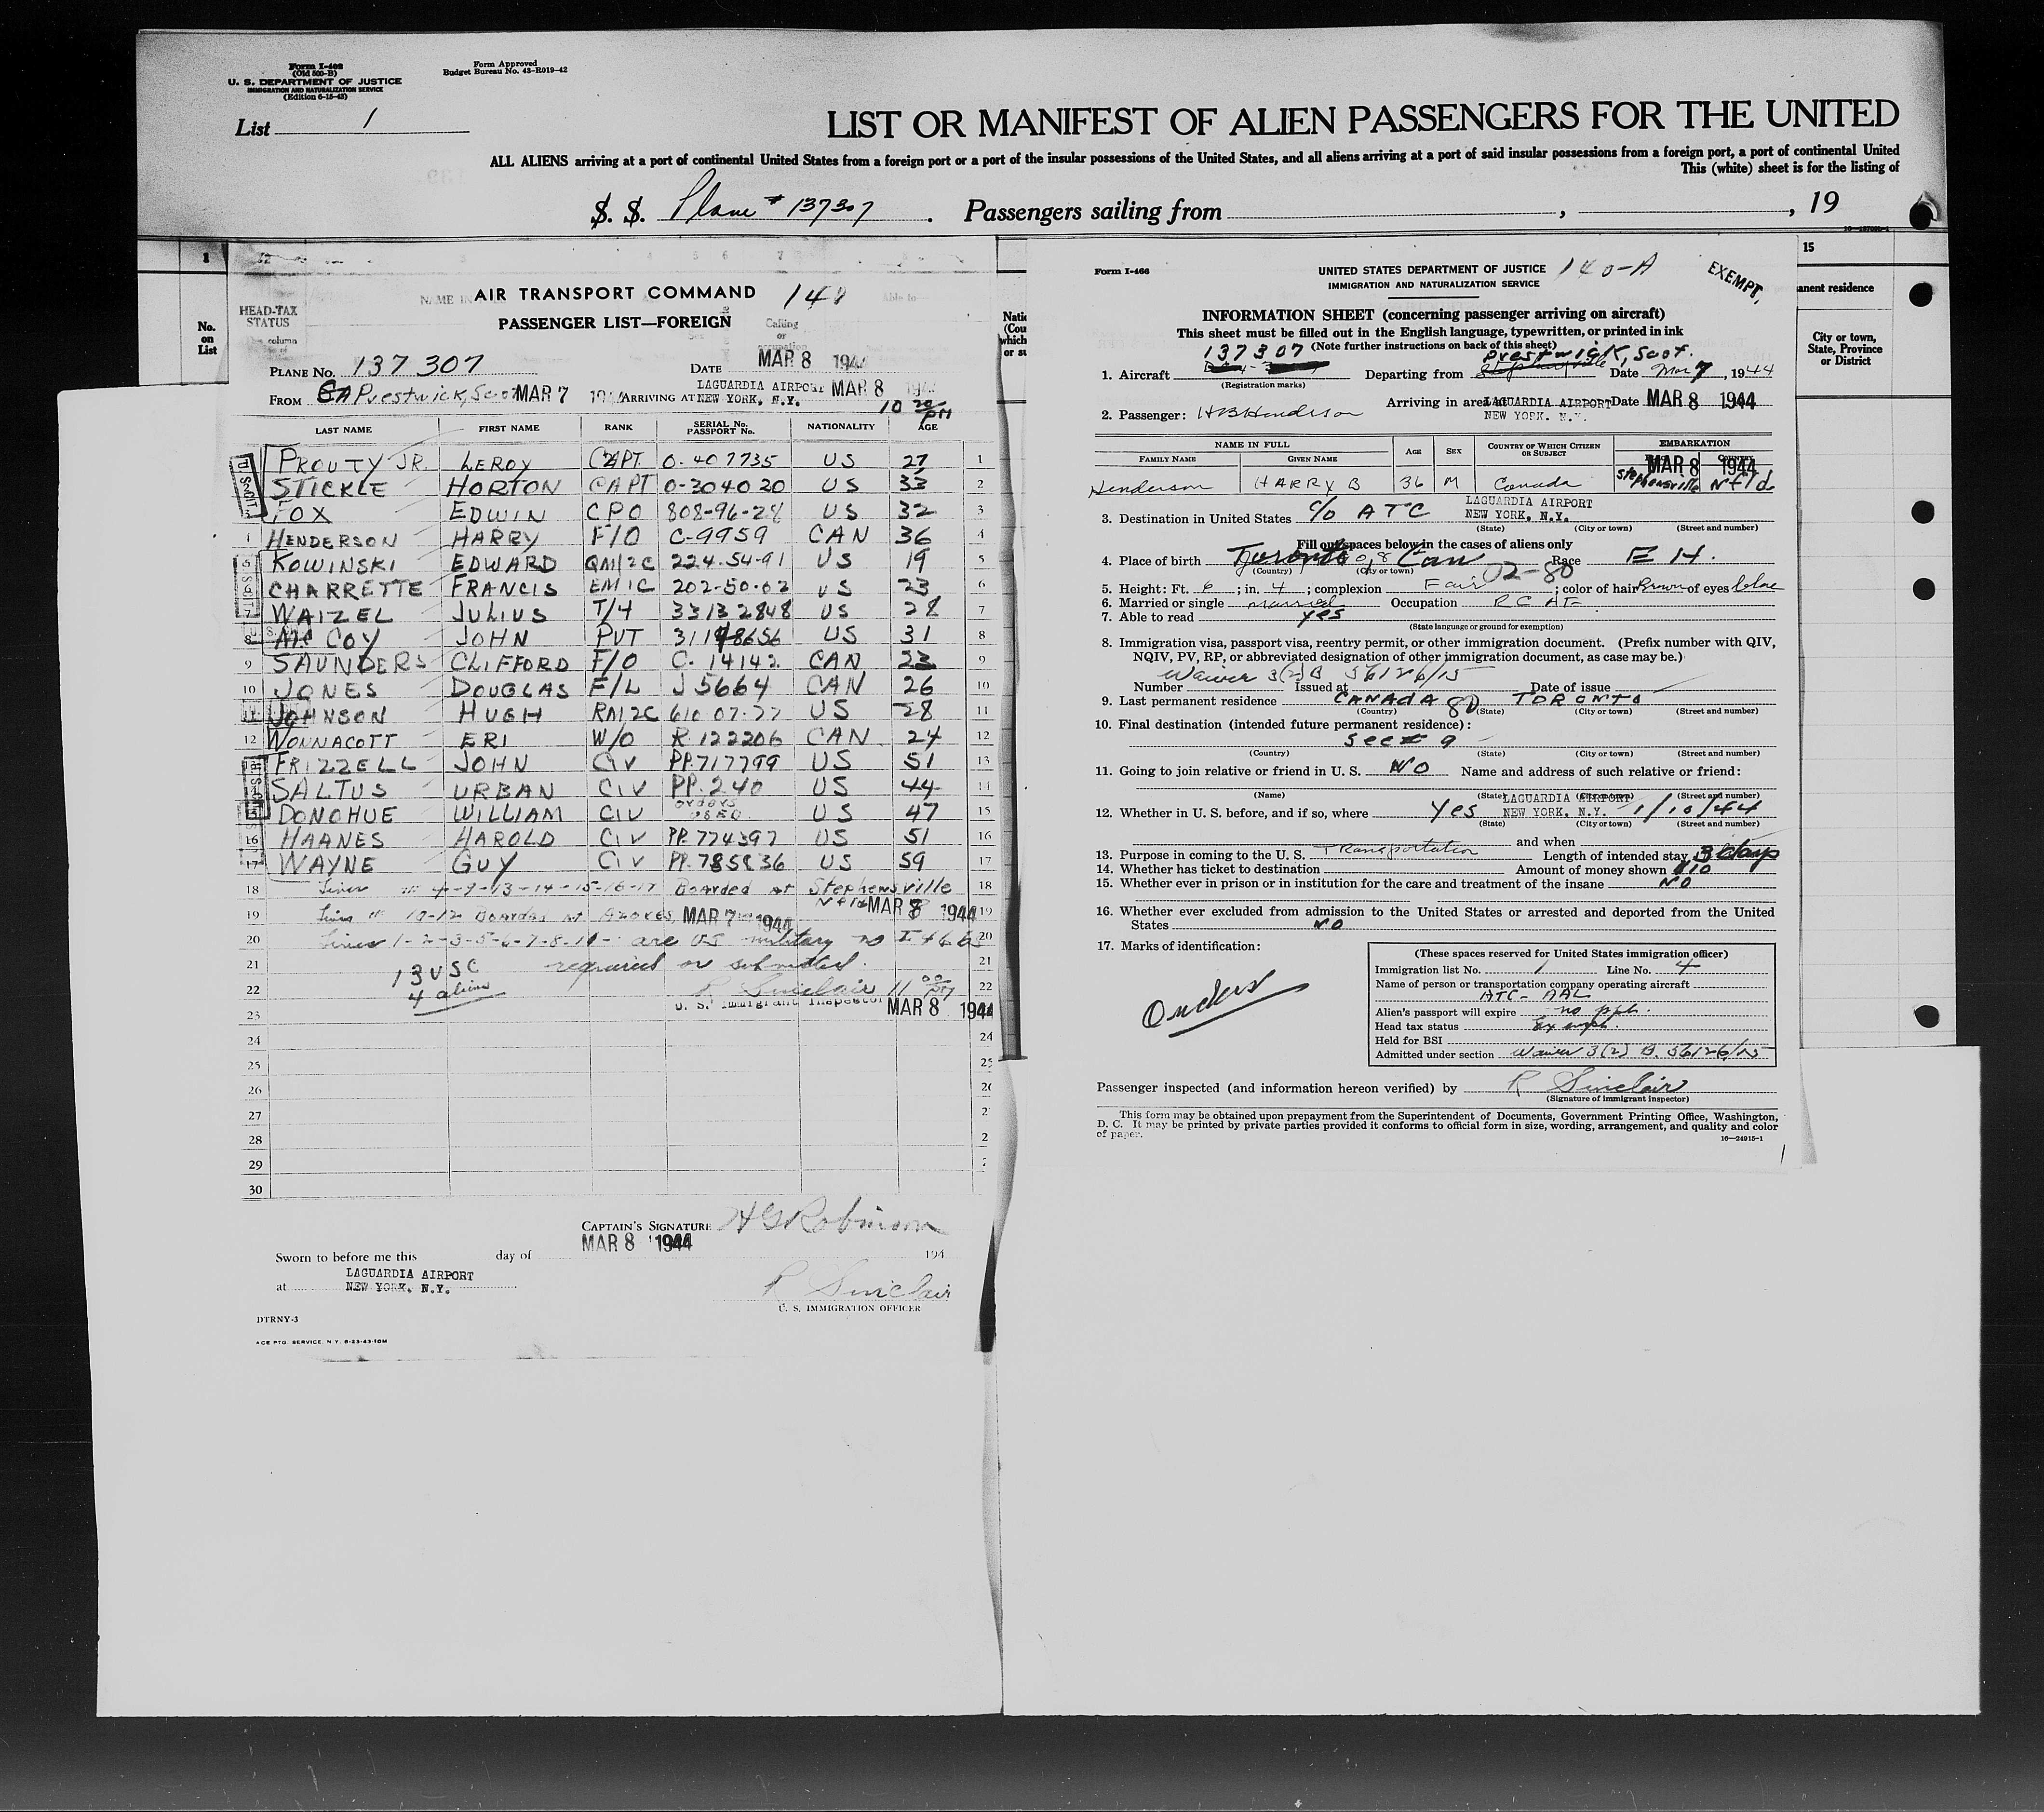 Form I-402
(Old 500-B)
U. S. DEPARTMENT OF JUSTICE
IMMIGRATION AND NATURALIZATION SERVICE
(Edition 6-15-43)
Form Approved
Budget Bureau No. 43-R019-42
List 1
LIST OR MANIFEST OF ALIEN PASSENGERS FOR THE UNITED
ALL ALIENS arriving at a port of continental United States from a foreign port or a port of the insular possessions of the United States, and all aliens arriving at a port of said insular possessions from a foreign port, a port of continental United
This (white) sheet is for the listing of
S. S. Plane # 137307. Passengers sailing from , , 19
1
No. on List
HEAD-TAX STATUS
AIR TRANSPORT COMMAND
PASSENGER LIST—FOREIGN
PLANE NO. 137307 DATE MAR 8 1944
FROM Prestwick, Scot MAR 7 ARRIVING AT LAGUARDIA AIRPORT NEW YORK, N.Y. MAR 8
10 20 PM
LAST NAME FIRST NAME RANK SERIAL No. PASSPORT No. NATIONALITY AGE
PROUTY JR. LEROY CAPT O-407735 US 27 1
STICKLE HORTON CAPT O-304020 US 33 2
FOX EDWIN CPO 808-96-28 US 32 3
HENDERSON HARRY F/O C-9959 CAN 36 4
5 KOWINSKI EDWARD QM/2C 224-54-91 US 19 5
CHARRETTE FRANCIS EM1C 202-50-02 US 23 6
7 WAIZEL JULIUS T/4 33132848 US 28 7
8 McCOY JOHN PVT 31148656 US 31 8
9 SAUNDERS CLIFFORD F/O C. 14142 CAN 23 9
10 JONES DOUGLAS F/L J5664 CAN 26 10
JOHNSON HUGH RM2C 610 07-77 US 28 11
12 WONNACOTT ERI W/O R 122206 CAN 24 12
FRIZZELL JOHN CIV PP.717799 US 51 13
SALTUS URBAN CIV PP.240 US 44 14
DONOHUE WILLIAM CIV orders US 47 15
16 HAANES HAROLD CIV PP.774397 US 51 16
17 WAYNE GUY CIV PP.785836 US 59 17
18 Lines 4-9-13-14-15-16-17 Boarded at Stephensville 18
Nfld MAR 8 1944
19 Lines 10-12 Boarded at Azores MAR 7 1944 19
20 Lines 1-2-3-5-6-7-8-11- are US military no I466 20
21 13 USC required or submitted. 21
22 4 aliens R Sinclair 11 00 PM 22
23 U. S. Immigrant Inspector MAR 8 1944
24 24
25
26
27
28
29
30
CAPTAIN'S SIGNATURE H G Robinson
MAR 8 1944
Sworn to before me this day of 194
at LAGUARDIA AIRPORT NEW YORK, N.Y.
R Sinclair
U. S. IMMIGRATION OFFICER
DTRNY-3
ACE PTG. SERVICE. N.Y. 8-23-43-10M
Form I-466
UNITED STATES DEPARTMENT OF JUSTICE
IMMIGRATION AND NATURALIZATION SERVICE
140-A
EXEMPT.
INFORMATION SHEET (concerning passenger arriving on aircraft)
This sheet must be filled out in the English language, typewritten, or printed in ink
(Note further instructions on back of this sheet)
1. Aircraft 137307 Departing from Prestwick, Scot. Date Mar 7, 1944
(Registration marks)
Arriving in area at LAGUARDIA AIRPORT NEW YORK, N.Y. Date MAR 8 1944
2. Passenger: H B Henderson
NAME IN FULL AGE SEX COUNTRY OF WHICH CITIZEN OR SUBJECT EMBARKATION
FAMILY NAME GIVEN NAME
MAR 8 1944
Henderson HARRY B 36 M Canada Stephensville Nfld
3. Destination in United States C/O ATC LAGUARDIA AIRPORT NEW YORK, N.Y.
(State) (City or town) (Street and number)
Fill out spaces below in the cases of aliens only
4. Place of birth Toronto Can Race E H.
(Country) (City or town)
02-80
5. Height: Ft. 6; in. 4; complexion Fair; color of hair Brown of eyes blue
6. Married or single married Occupation RCAF
7. Able to read yes
(State language or ground for exemption)
8. Immigration visa, passport visa, reentry permit, or other immigration document. (Prefix number with QIV, NQIV, PV, RP, or abbreviated designation of other immigration document, as case may be.)
Waiver 3(2)B 56126/15
Number Issued at Date of issue
9. Last permanent residence CANADA 80 TORONTO
(Country) (State) (City or town) (Street and number)
10. Final destination (intended future permanent residence):
See # 9
(Country) (State) (City or town) (Street and number)
11. Going to join relative or friend in U. S. NO Name and address of such relative or friend:
(Name) (State) (City or town) (Street and number)
12. Whether in U. S. before, and if so, where Yes LAGUARDIA AIRPORT NEW YORK, N.Y. 1/10/44
(State) (City or town) (Street and number)
and when
13. Purpose in coming to the U. S. Transportation Length of intended stay 3 days
14. Whether has ticket to destination Amount of money shown $10
15. Whether ever in prison or in institution for the care and treatment of the insane NO
16. Whether ever excluded from admission to the United States or arrested and deported from the United States NO
17. Marks of identification:
(These spaces reserved for United States immigration officer)
Immigration list No. 1 Line No. 4
Name of person or transportation company operating aircraft
ATC- AAL
Alien's passport will expire no ppt.
Head tax status Exempt.
Held for BSI
Admitted under section Waiver 3(2) B. 56126/15
Passenger inspected (and information hereon verified) by R Sinclair
(Signature of immigrant inspector)
This form may be obtained upon prepayment from the Superintendent of Documents, Government Printing Office, Washington, D. C. It may be printed by private parties provided it conforms to official form in size, wording, arrangement, and quality and color of paper.
16—24915-1
15
anent residence
City or town, State, Province or District